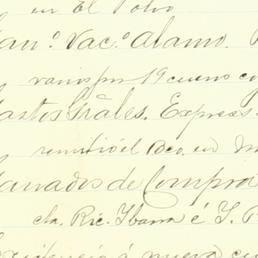 en El Polvo
an.º Vac.º Alamo.
varios pr 19 cueros co
astos Gráles. Express
remitió el Dco. en
anados de Compra
cta. Ric. Ybarra é
á nueva cu